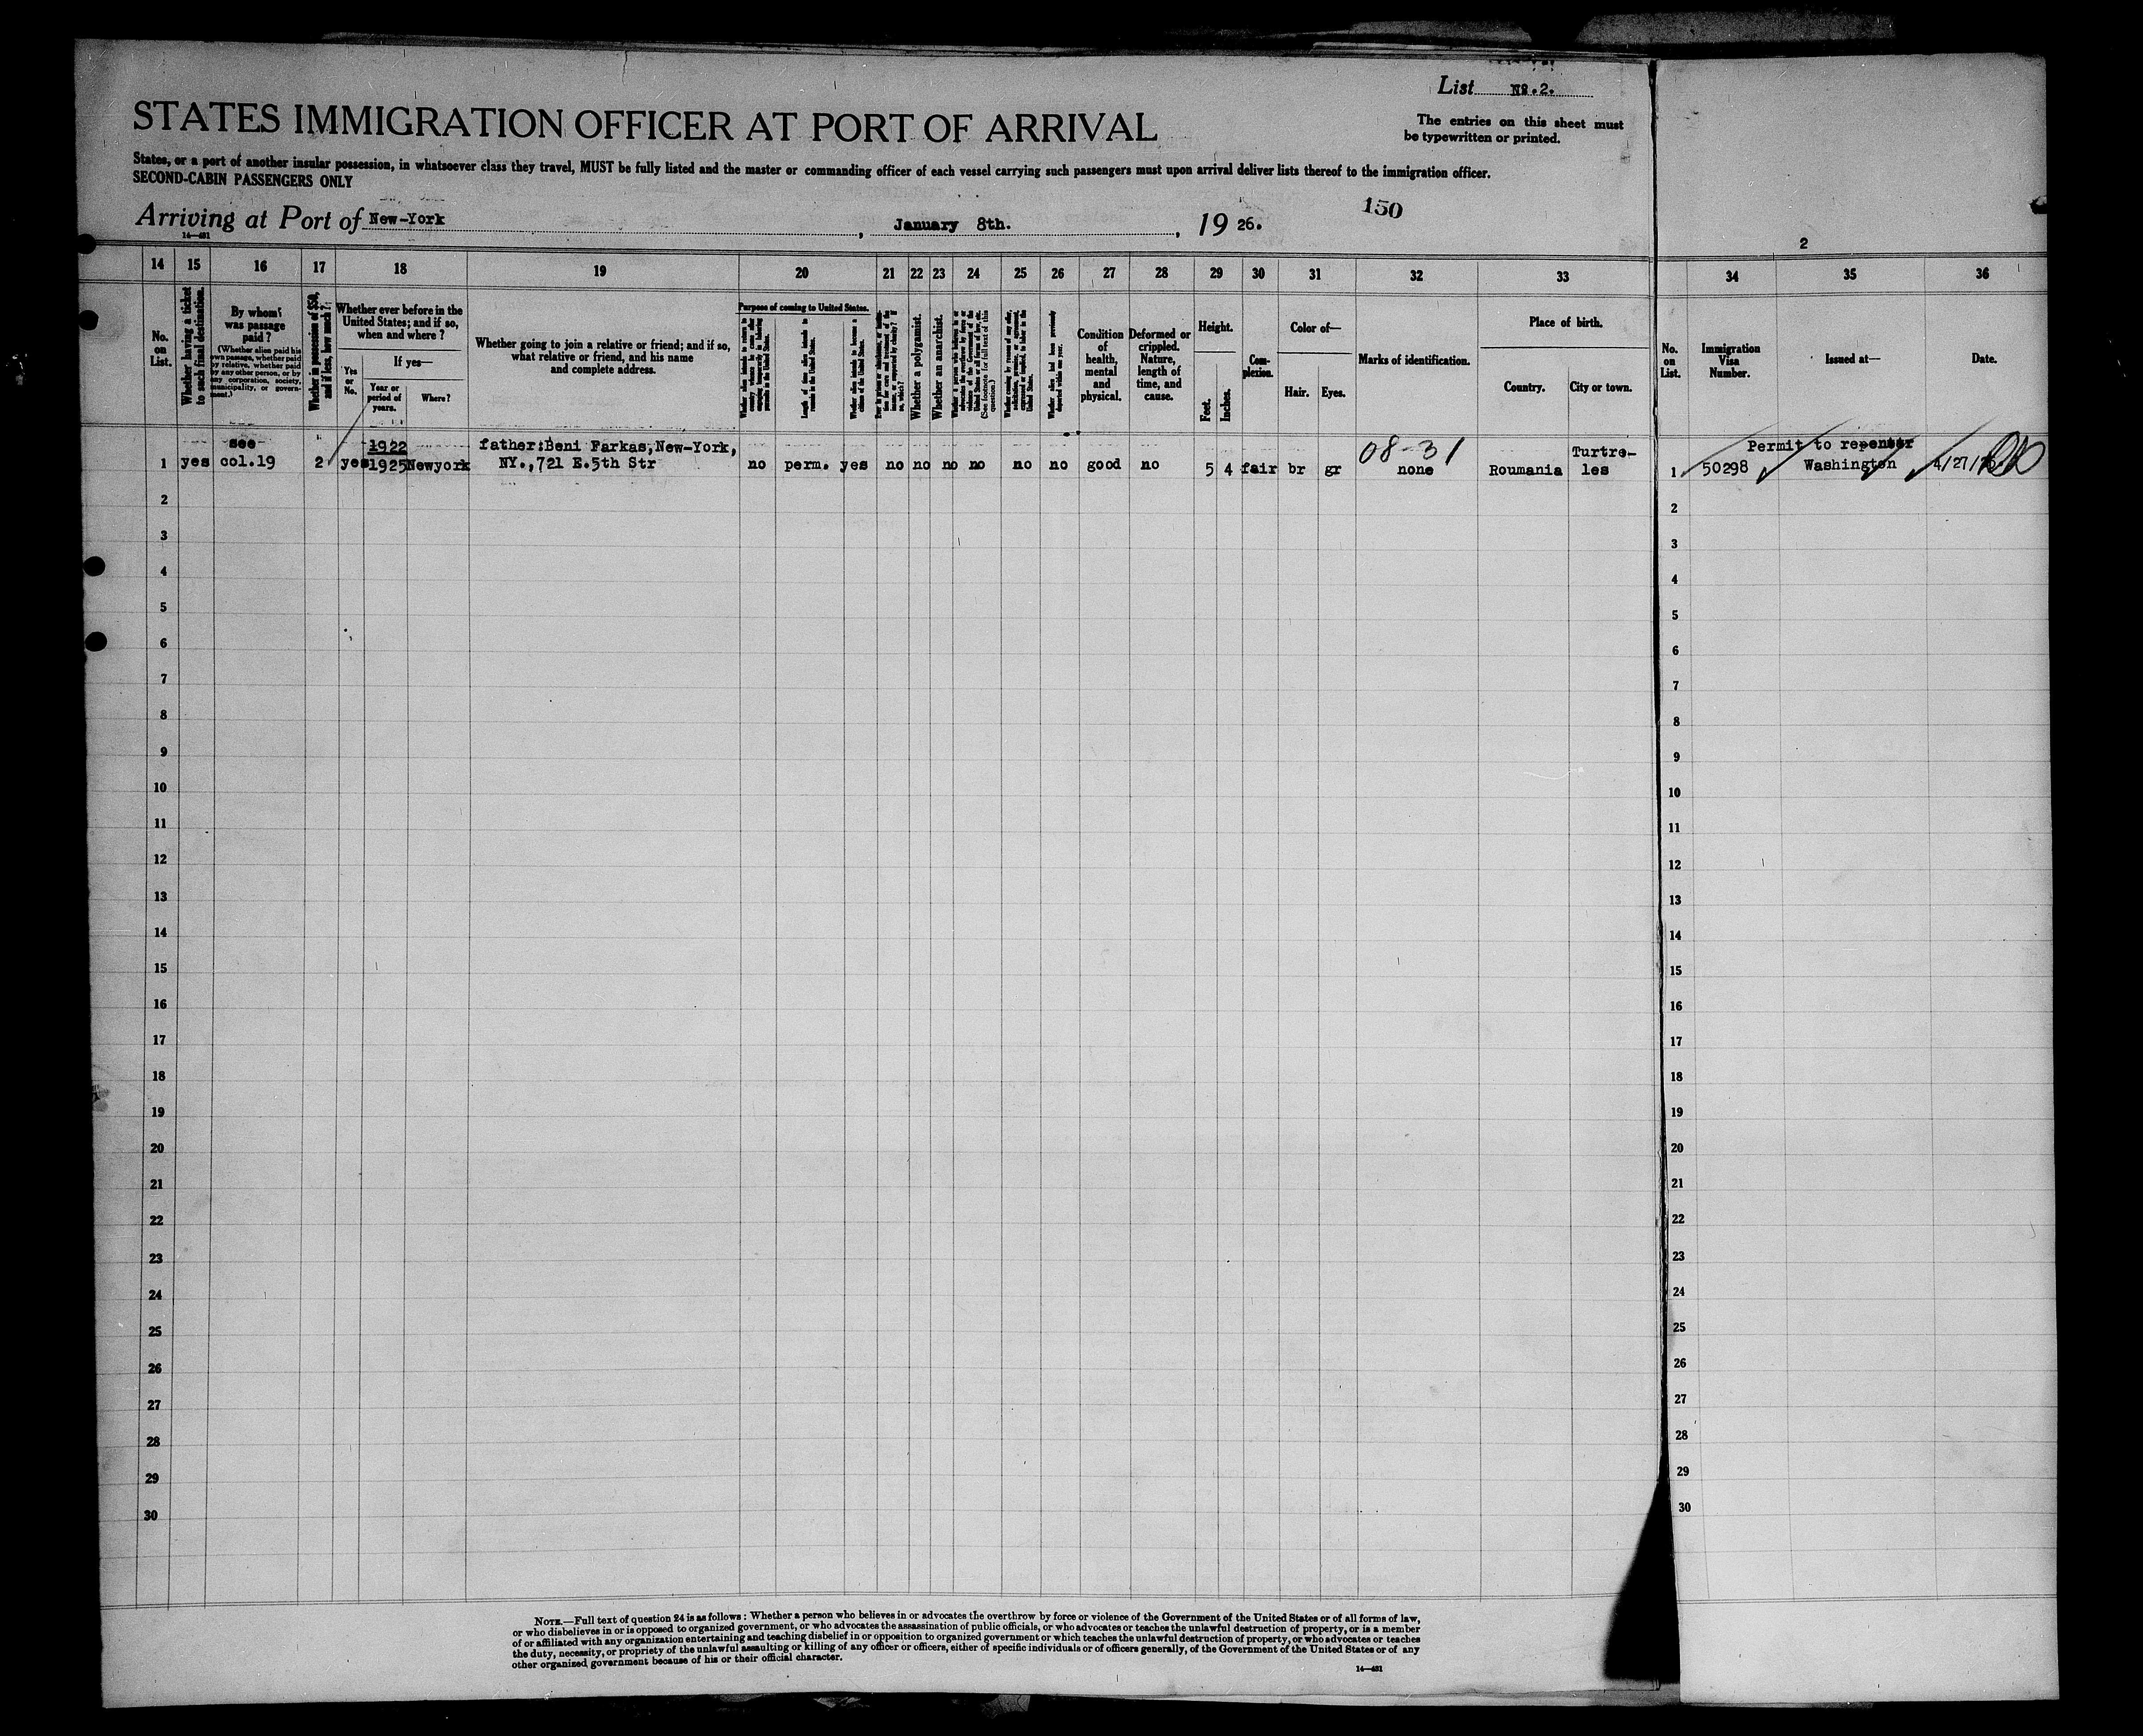 List No.2.
STATES IMMIGRATION OFFICER AT PORT OF ARRIVAL
The entries on this sheet must
be typewritten or printed.
States, or a port of another insular possession, in whatsoever class they travel, MUST be fully listed and the master or commanding officer of each vessel carrying such passengers must upon arrival deliver lists thereof to the immigration officer.
SECOND-CABIN PASSENGERS ONLY
150
Arriving at Port of New-York, January 8th., 1926.
14—481
2
14 15 16 17 18 19 20 21 22 23 24 25 26 27 28 29 30 31 32 33 34 35 36
No. on List.
Whether having a ticket to such final destination.
By whom was passage paid?
(Whether alien paid his own passage, whether paid by relative, whether paid by any other person, or by any corporation, society, municipality, or government.)
Whether in possession of $50, and if less, how much?
Whether ever before in the United States; and if so, when and where?
If yes—
Yes or No.
Year or period of years.
Where?
Whether going to join a relative or friend; and if so, what relative or friend, and his name and complete address.
Purpose of coming to United States.
Length of time alien intends to remain in the United States.
Whether alien intends to become a citizen of the United States.
Whether a polygamist.
Whether an anarchist.
(See footnote for full text of this question.)
Whether alien had been previously deported within one year.
Condition of health, mental and physical.
Deformed or crippled. Nature, length of time, and cause.
Height.
Feet. Inches.
Complexion.
Color of—
Hair. Eyes.
Marks of identification.
Place of birth.
Country. City or town.
No. on List.
Immigration Visa Number.
Issued at—
Date.
see 1922 father:Beni Farkas,New-York, 08-31 Turtre- Permit to repenter
1 yes col.19 2 yes 1925 Newyork NY.,721 E.5th Str no perm. yes no no no no no no good no 5 4 fair br gr none Roumania les 1 50298 Washington 4/27/
2 2
3 3
4 4
5 5
6 6
7 7
8 8
9 9
10 10
11 11
12 12
13 13
14 14
15 15
16 16
17 17
18 18
19 19
20 20
21 21
22 22
23 23
24 24
25 25
26 26
27 27
28 28
29 29
30 30
NOTE.—Full text of question 24 is as follows: Whether a person who believes in or advocates the overthrow by force or violence of the Government of the United States or of all forms of law,
or who disbelieves in or is opposed to organized government, or who advocates the assassination of public officials, or who advocates or teaches the unlawful destruction of property, or is a member
of or affiliated with any organization entertaining and teaching disbelief in or opposition to organized government or which teaches the unlawful destruction of property, or who advocates or teaches
the duty, necessity, or propriety of the unlawful assaulting or killing of any officer or officers, either of specific individuals or of officers generally, of the Government of the United States or of any
other organized government because of his or their official character.
14—481